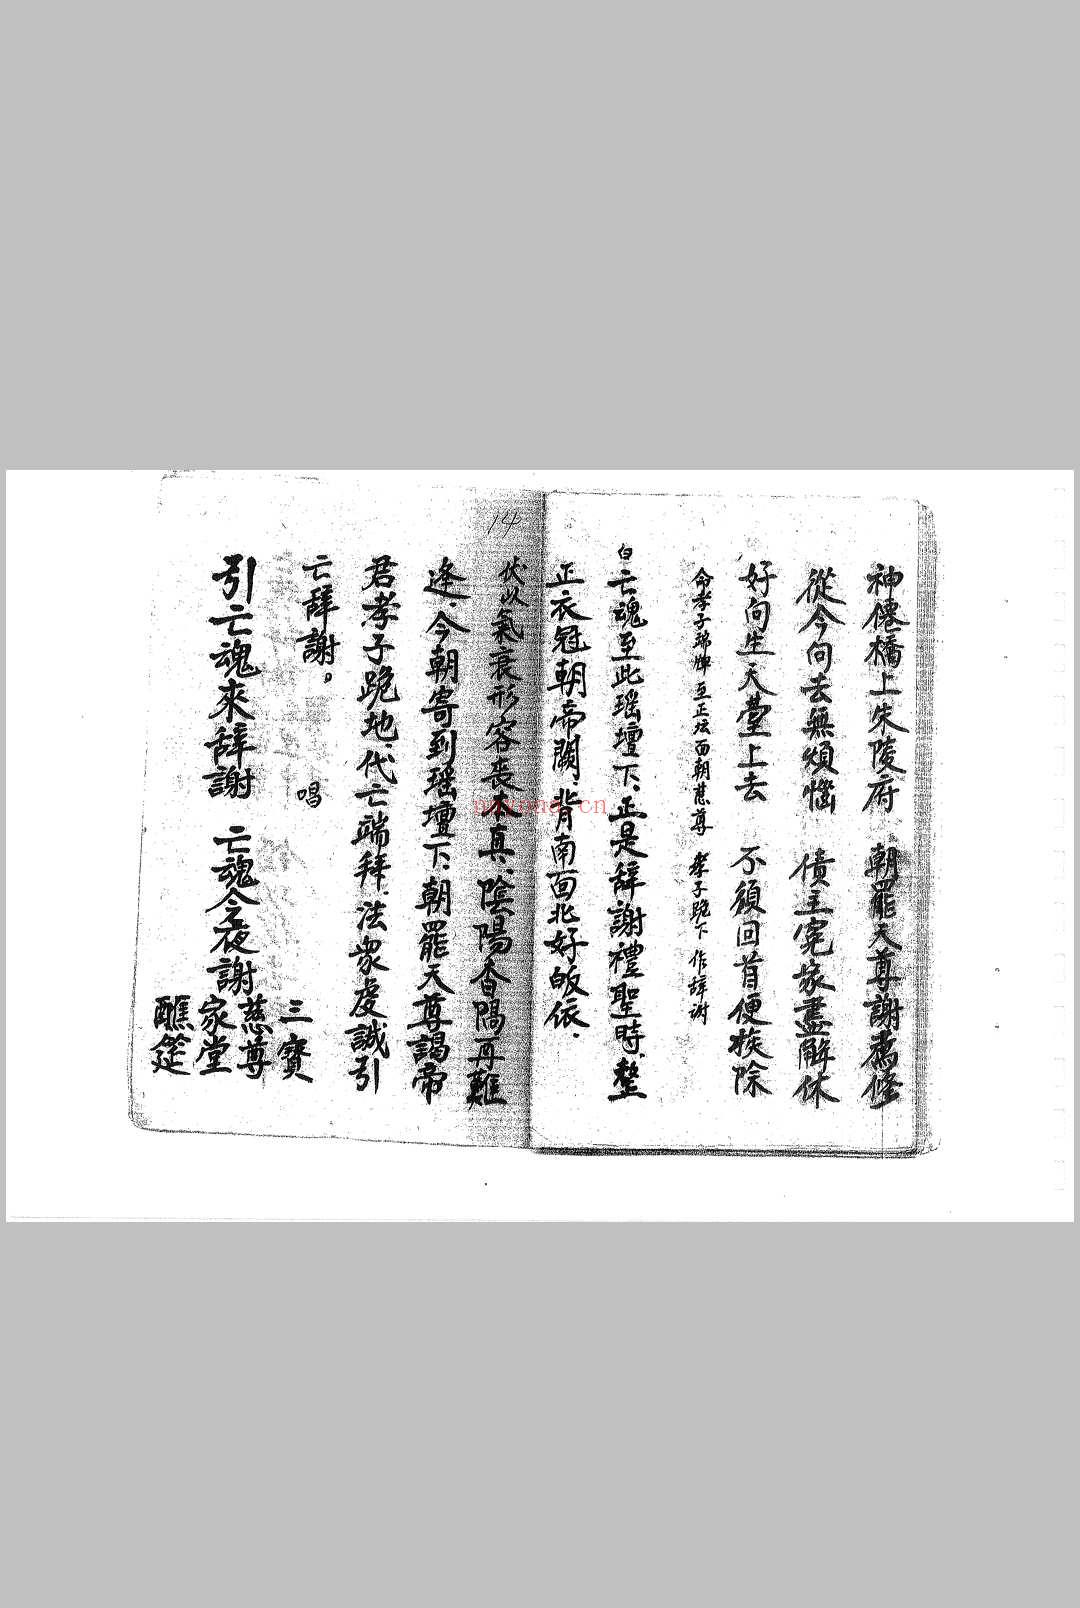 神僊橋上朱陵府 朝罷天尊謝薦修
從今向去無煩惱 債主冤家盡解休
好向生天臺上去 不須回首便疾除
命孝子端牌至正坛面朝慈尊 孝子跪下 作辞谢
白亡魂至此瑶壇下、正是辞謝禮聖時、整
正衣冠朝帝闕、背南面北好皈依、
14
伏以氣衰形容喪本真、陰陽杳隔再難
逢、今朝寄到瑶壇下、朝罷天尊謁帝
君孝子跪地、代亡端拜、法衆虔誠引
亡辞謝。 唱
引亡魂來辞謝 亡魂今夜謝
三寶
慈尊
家堂
醮筵
nayona.cn